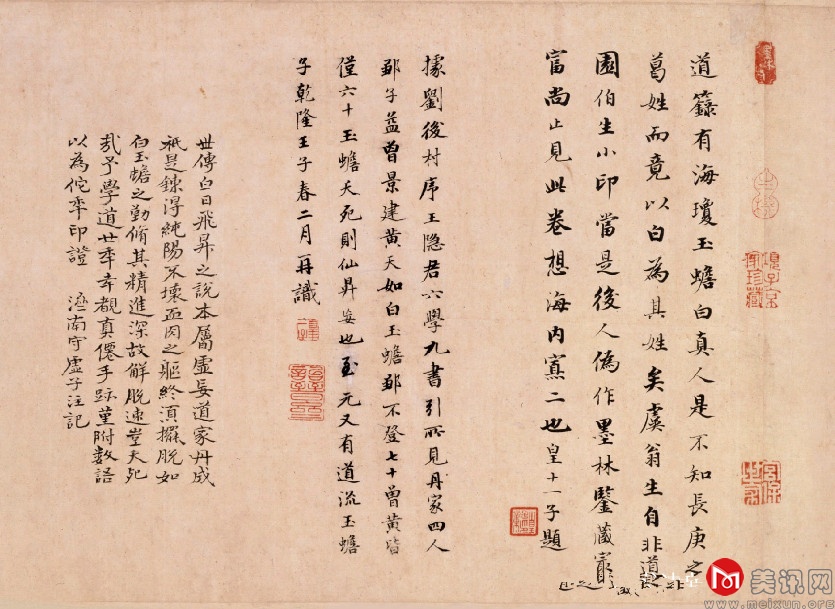 道籙有海瓊玉蟾白真人是不知長庚之
葛姓而竟以白為其姓矣虞翁生自非道
園伯生小印當是後人偽作墨林鑒藏最
富尚止見此卷想海内寡二也皇十一子題
據劉後村序王隐君六學九書引所見丹家四人
鄒子益曾景建黄天如白玉蟾鄒不登七十曾黄皆
僅六十玉蟾夭死則仙昇妄也至元又有道流玉蟾
子乾隆壬子春二月再識
世傳白日飛昇之說本屬虛妄道家丹成
祇是鍊淂純陽不壞而因之軀終湏擺脱如
白玉蟾之勤脩其精進深故解脱速豈夭死
哉予學道廿年幸覩真僊手跡堇附數語
以為佗年印證 濟南守虛子注記
項子京
家珍藏
宮保
世家
美讯网
www.meixun.org